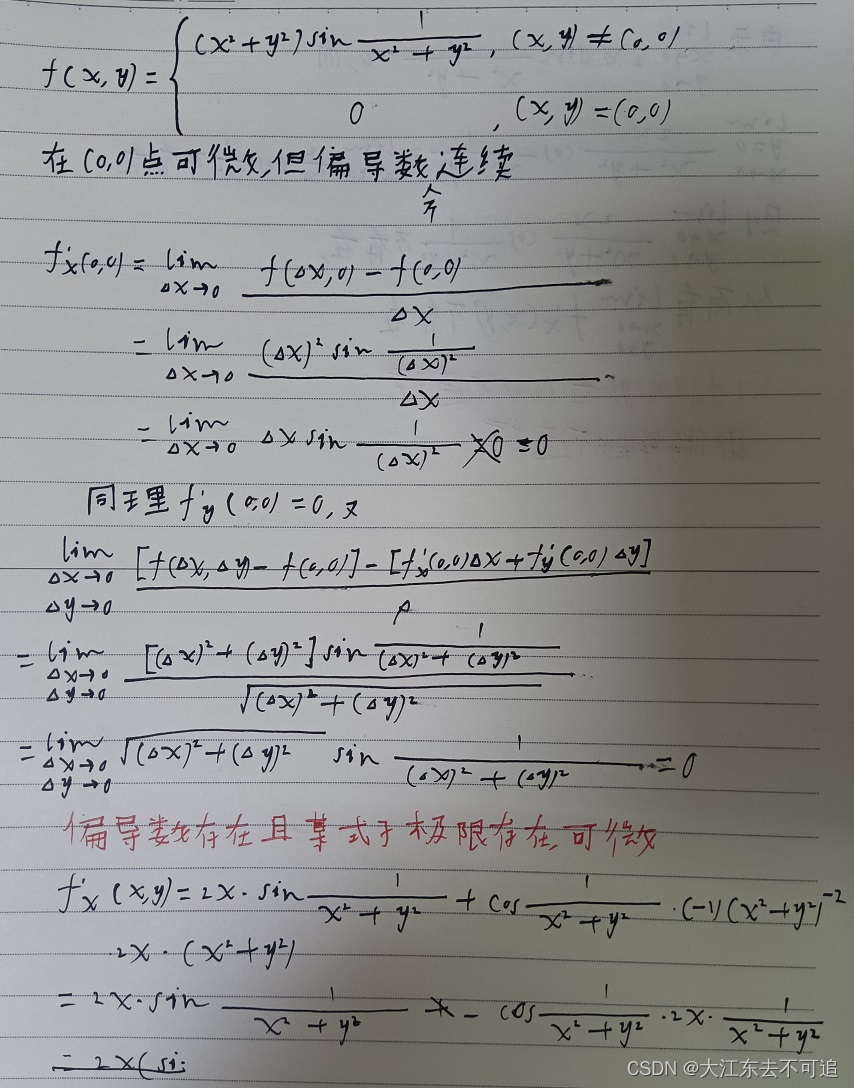 f(x,y) = { (x²+y²) sin 1/(x²+y²), (x,y) ≠ (0,0)
0, (x,y) = (0,0)
在(0,0)点可微,但偏导数连续
不
f'x(0,0) = lim Δx→0 [f(Δx,0) - f(0,0)] / Δx
= lim Δx→0 [(Δx)² sin 1/(Δx)²] / Δx
= lim Δx→0 Δx sin 1/(Δx)² = 0
同理 f'y(0,0) = 0, 又
lim Δx→0 Δy→0 {[f(Δx,Δy) - f(0,0)] - [f'x(0,0)Δx + f'y(0,0)Δy]} / ρ
= lim Δx→0 Δy→0 {[(Δx)²+(Δy)²] sin 1/((Δx)²+(Δy)²)} / √((Δx)²+(Δy)²)
= lim Δx→0 Δy→0 √((Δx)²+(Δy)²) sin 1/((Δx)²+(Δy)²) = 0
偏导数存在且某式子极限存在,可微
f'x(x,y) = 2x·sin 1/(x²+y²) + cos 1/(x²+y²) ·(-1)(x²+y²)⁻²
2x·(x²+y²)
= 2x·sin 1/(x²+y²) - cos 1/(x²+y²) ·2x· 1/(x²+y²)
= 2x(si
CSDN @大江东去不可追